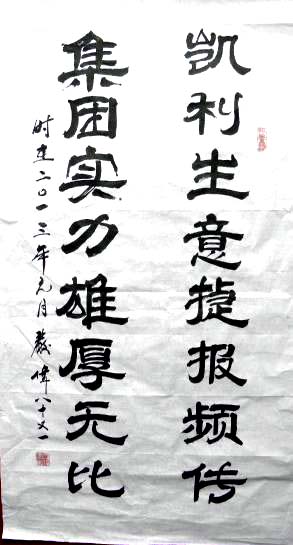 凯利生意捷报频传
集团实力雄厚无比
时在二〇一三年元月 伟八十又一